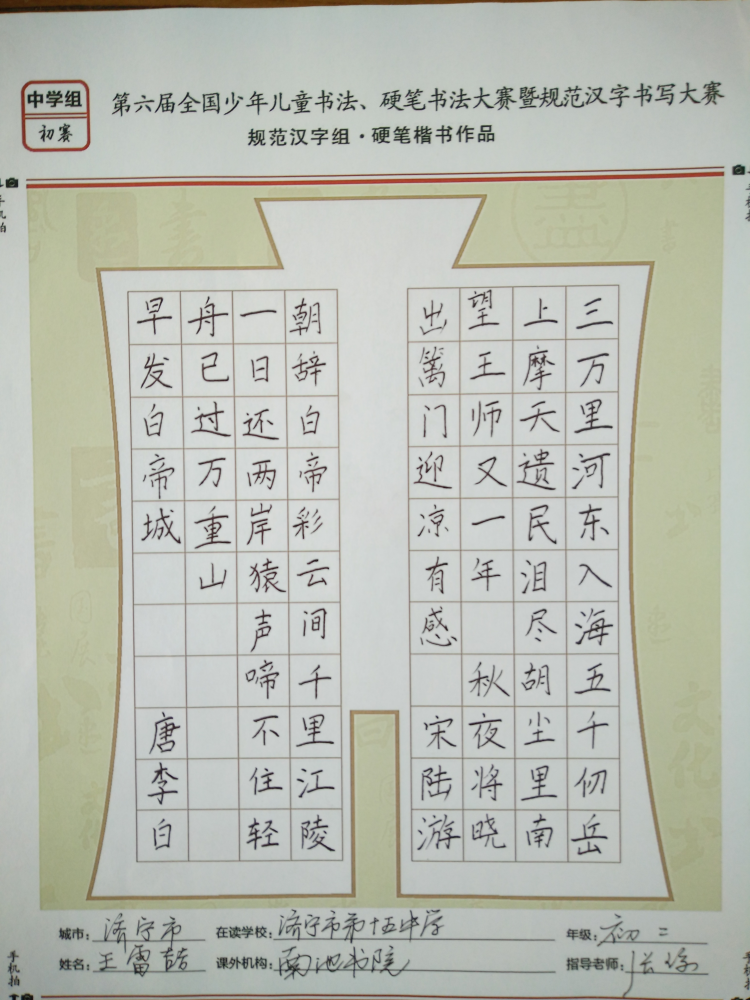 中学组
初赛
第六届全国少年儿童书法、硬笔书法大赛暨规范汉字书写大赛
规范汉字组·硬笔楷书作品
手机拍
手机拍
三万里河东入海五千仞岳
上摩天遗民泪尽胡尘里南
望王师又一年秋夜将晓
出篱门迎凉有感宋陆游
朝辞白帝彩云间千里江陵
一日还两岸猿声啼不住轻
舟已过万重山
早发白帝城唐李白
城市：济宁市 在读学校：济宁市第十五中学 年级：初二
姓名：王雷喆 课外机构：南池书院 指导老师：张
手机拍
手机拍